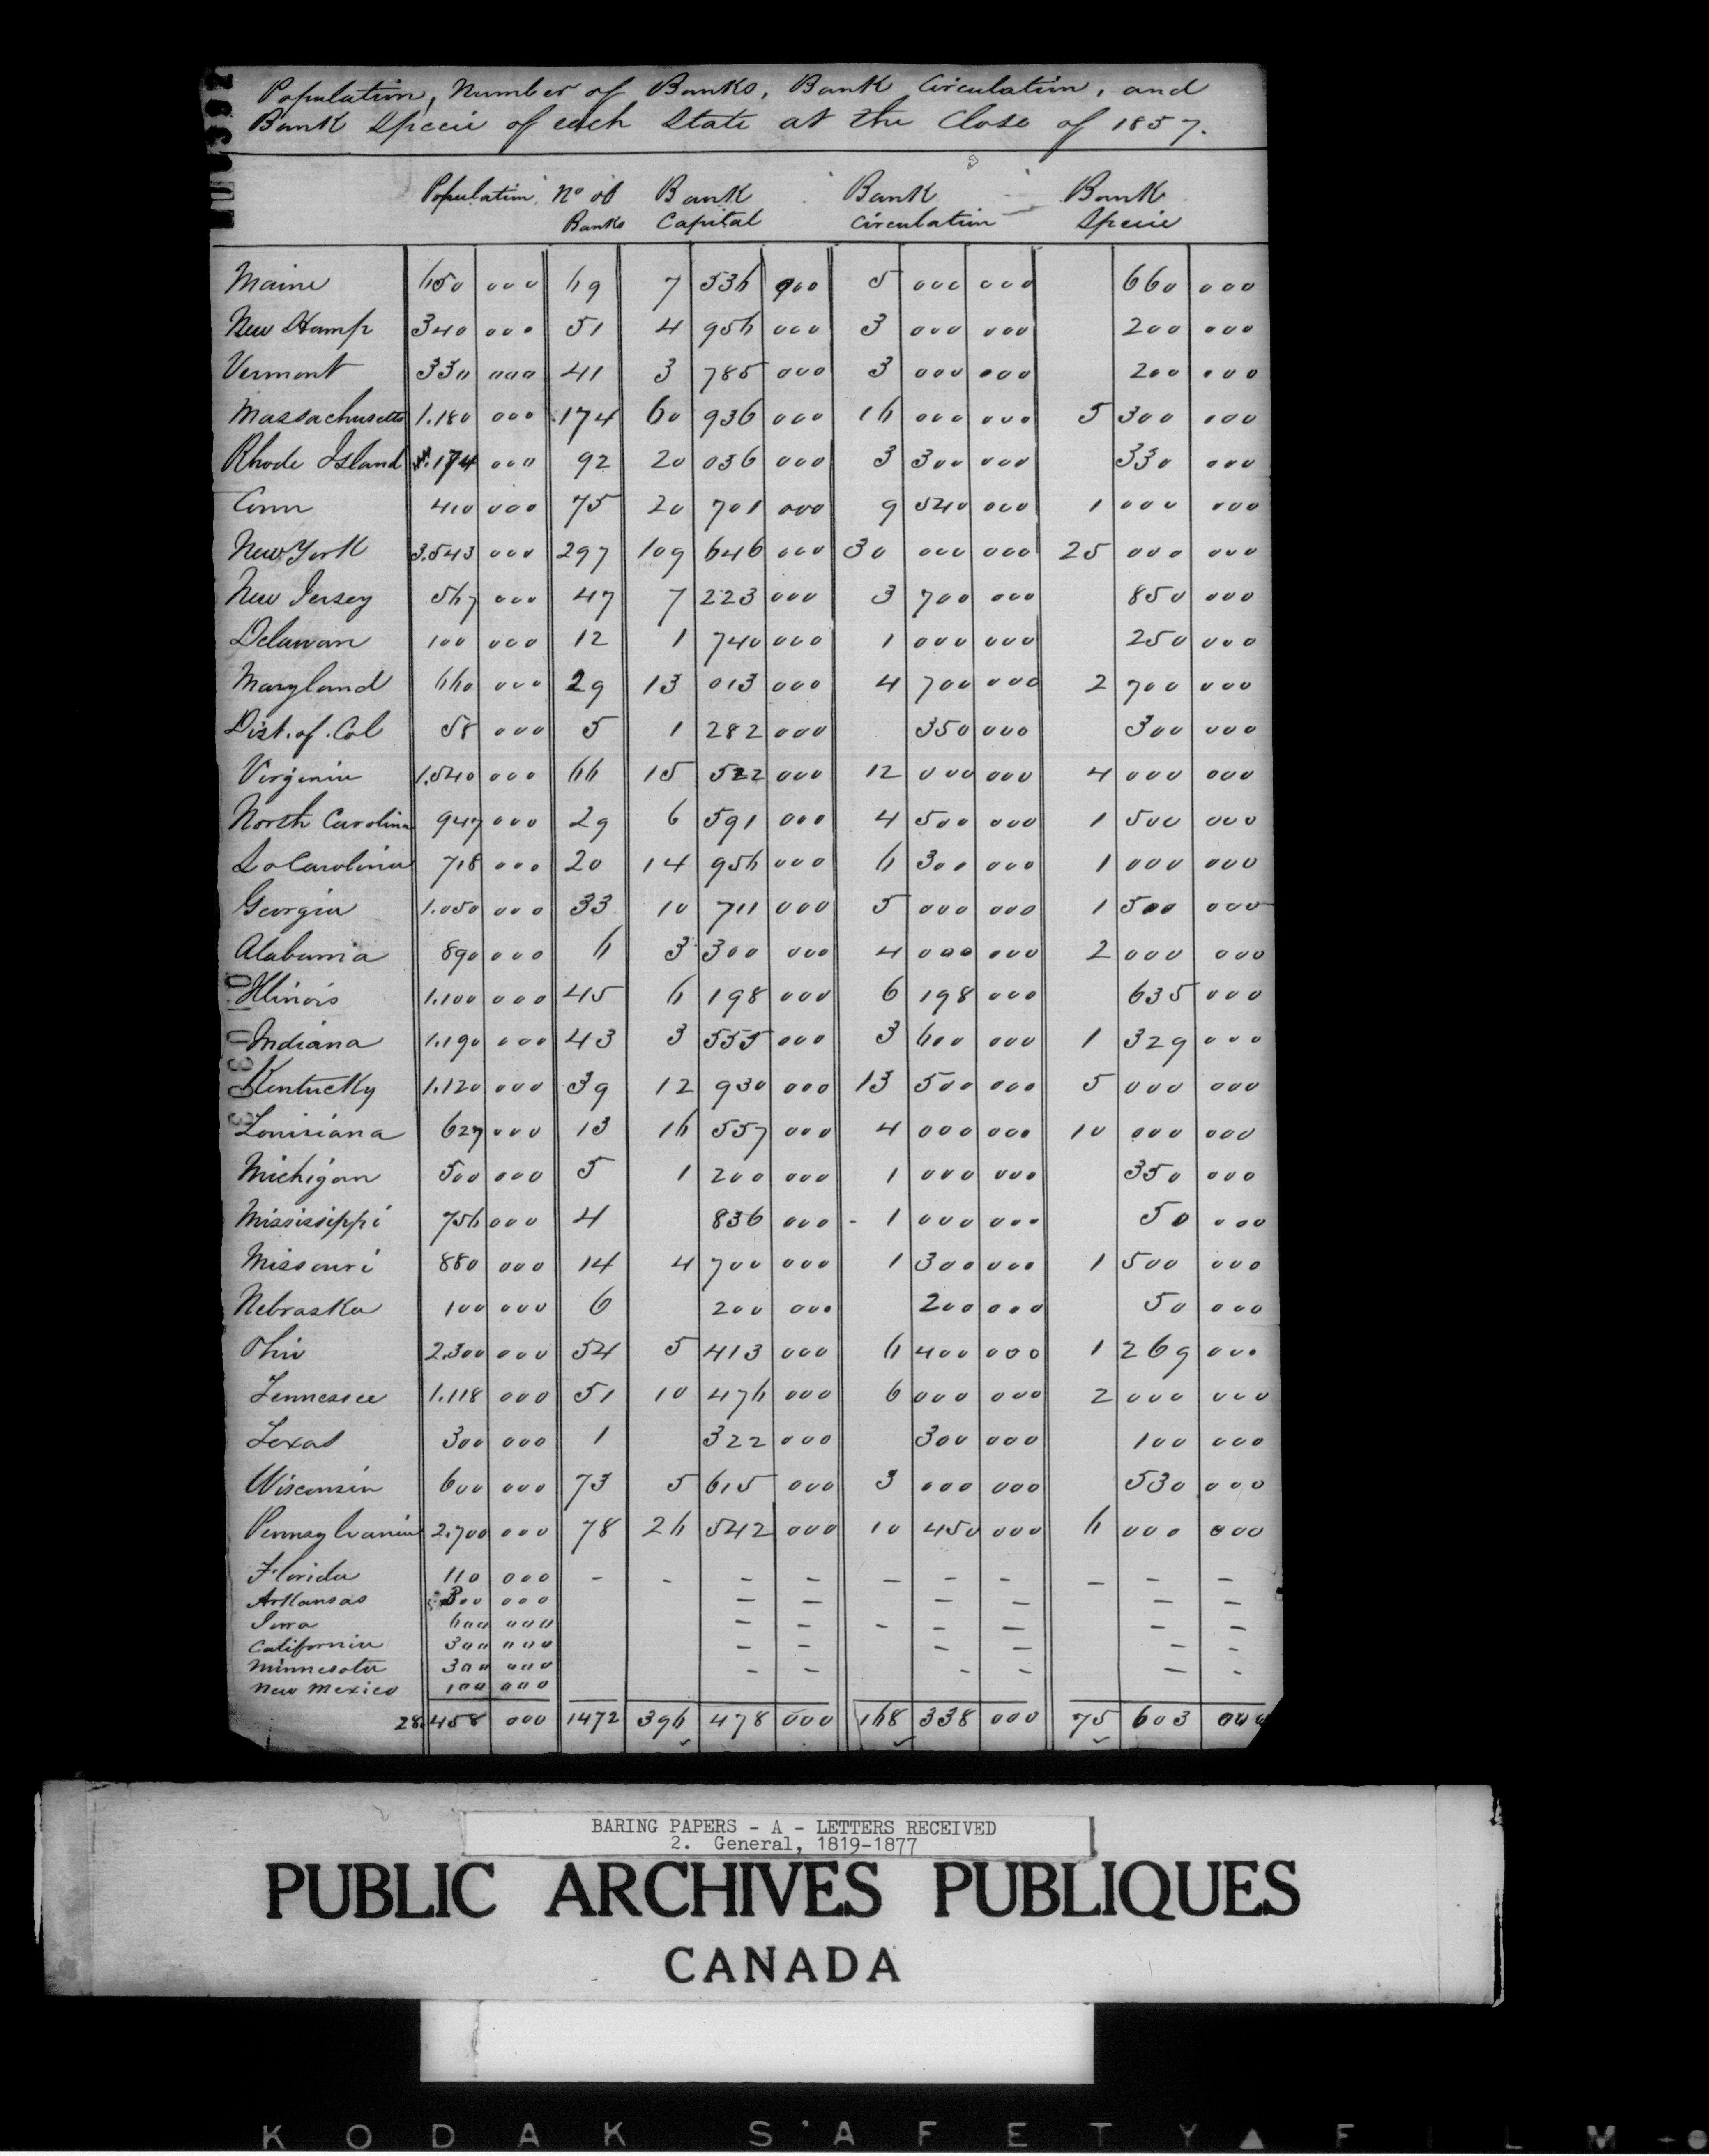 Population, Number of Banks, Bank Circulation, and
Bank Specie of each State at the Close of 1857.
Population No of Banks Bank Capital Bank Circulation Bank Specie
Maine 650 000 69 7 536 900 5 000 000 660 000
New Hamp 340 000 51 4 956 000 3 000 000 200 000
Vermont 330 000 41 3 785 000 3 000 000 200 000
Massachusetts 1.180 000 174 60 936 000 16 000 000 5 300 000
Rhode Island 174 000 92 20 036 000 3 300 000 330 000
Conn 410 000 75 20 701 000 9 540 000 1 000 000
New York 3.543 000 297 109 646 000 30 000 000 25 000 000
New Jersey 567 000 47 7 223 000 3 700 000 850 000
Delawar 100 000 12 1 740 000 1 000 000 250 000
Maryland 660 000 29 13 013 000 4 700 000 2 700 000
Dist. of. Col 58 000 5 1 282 000 350 000 300 000
Virginia 1.540 000 66 15 522 000 12 000 000 4 000 000
North Carolina 947 000 29 6 591 000 4 500 000 1 500 000
So Carolina 718 000 20 14 956 000 6 300 000 1 000 000
Georgia 1.050 000 33 10 711 000 5 000 000 1 500 000
Alabama 890 000 6 3 300 000 4 000 000 2 000 000
Illinois 1.100 000 45 6 198 000 6 198 000 635 000
Indiana 1.190 000 43 3 555 000 3 600 000 1 329 000
Kentucky 1.120 000 39 12 930 000 13 500 000 5 000 000
Louisiana 627 000 13 16 557 000 4 000 000 10 000 000
Michigan 500 000 5 1 200 000 1 000 000 350 000
Mississippi 756 000 4 836 000 - 1 000 000 50 000
Missouri 880 000 14 4 700 000 1 300 000 1 500 000
Nebraska 100 000 6 200 000 200 000 50 000
Ohio 2.300 000 54 5 413 000 6 400 000 1 269 000
Tennessee 1.118 000 51 10 476 000 6 000 000 2 000 000
Texas 300 000 1 322 000 300 000 100 000
Wisconsin 600 000 73 5 615 000 3 000 000 530 000
Pennsylvania 2.700 000 78 26 542 000 10 450 000 6 000 000
Florida 110 000 - - - - - - - - - -
Arkansas 300 000 - - - - - -
Iowa 600 000 - - - - - - -
California 300 000 - - - - - -
Minnesota 300 000 - - - - - -
New Mexico 100 000
28.458 000 1472 396 478 000 168 338 000 75 603 000
BARING PAPERS - A - LETTERS RECEIVED
2. General, 1819-1877
PUBLIC ARCHIVES PUBLIQUES
CANADA
KODAK SAFETY FILM